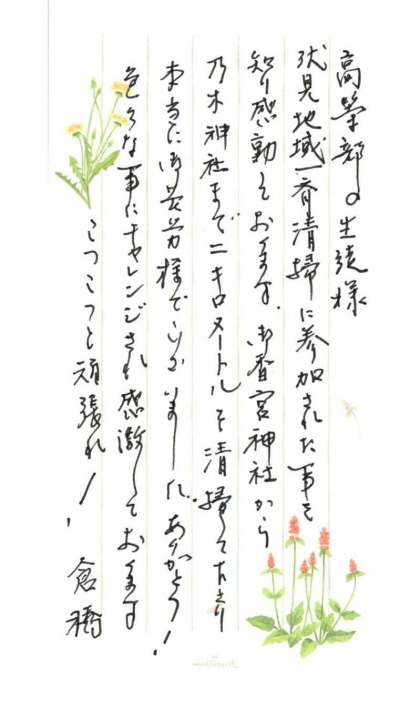 高等部の生徒様
伏見地域一斉清掃に参加された事を
知り感動しております。御香宮神社から
乃木神社まで二キロメートルを清掃して下さり
本当に御苦労様でございました。ありがとう!
色々な事にチャレンジされ感激しております
こつこつと頑張れ!
倉橋